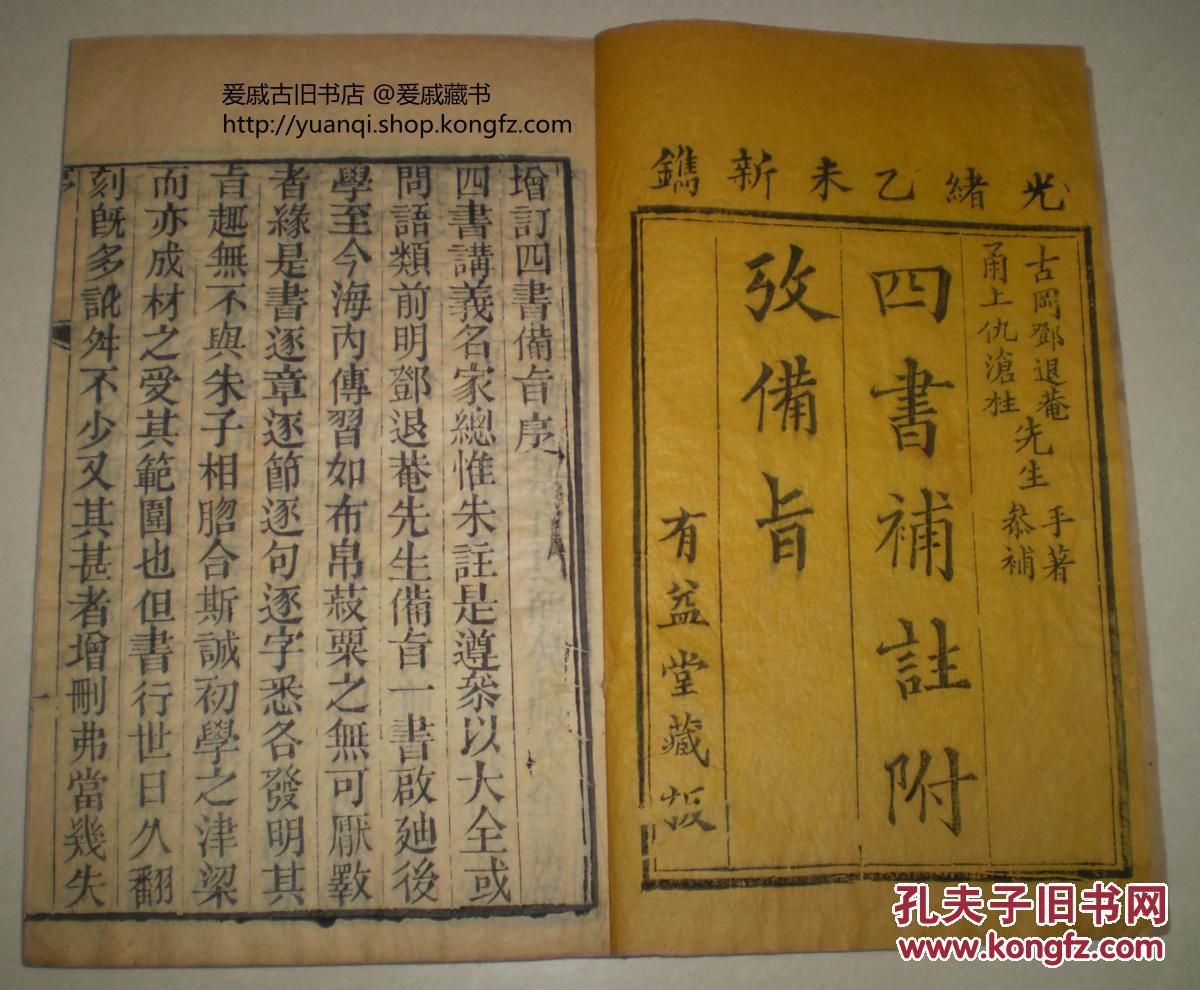 爰戚古旧书店 @爰戚藏书
http://yuanqi.shop.kongfz.com
光緒乙未新鐫
古岡鄧退菴先生手著
甬上仇滄柱先生叅補
四書補註附
攷備旨
有益堂藏板
增訂四書備旨序
四書講義名家總惟朱註是遵叅以大全或
問語類前明鄧退菴先生備旨一書啟廸後
學至今海內傳習如布帛菽粟之無可厭斁
者緣是書逐章逐節逐句逐字悉各發明其
旨趣無不與朱子相脗合斯誠初學之津梁
而亦成材之受其範圍也但書行世日久翻
刻旣多訛舛不少又其甚者增刪弗當幾失
孔夫子旧书网
www.kongfz.com